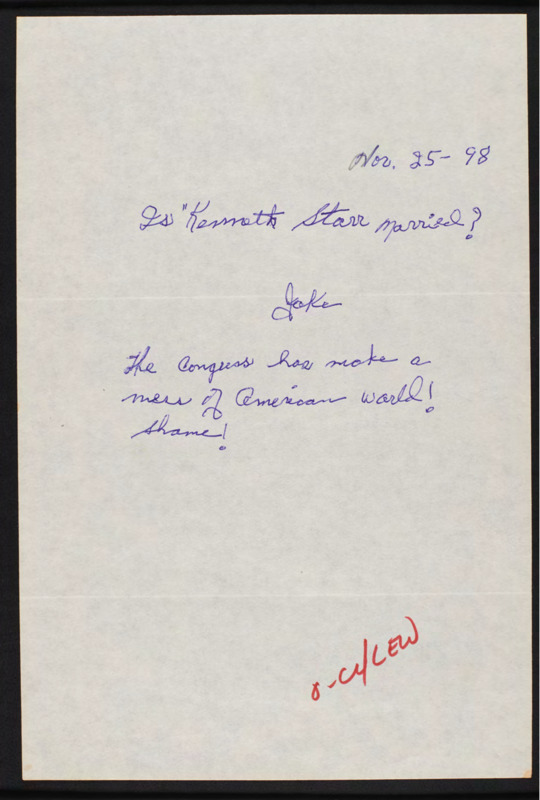 Nov. 25-98
Is "Kenneth Starr married?
Joke
The Congress has make a
mess of American world!
Shame!